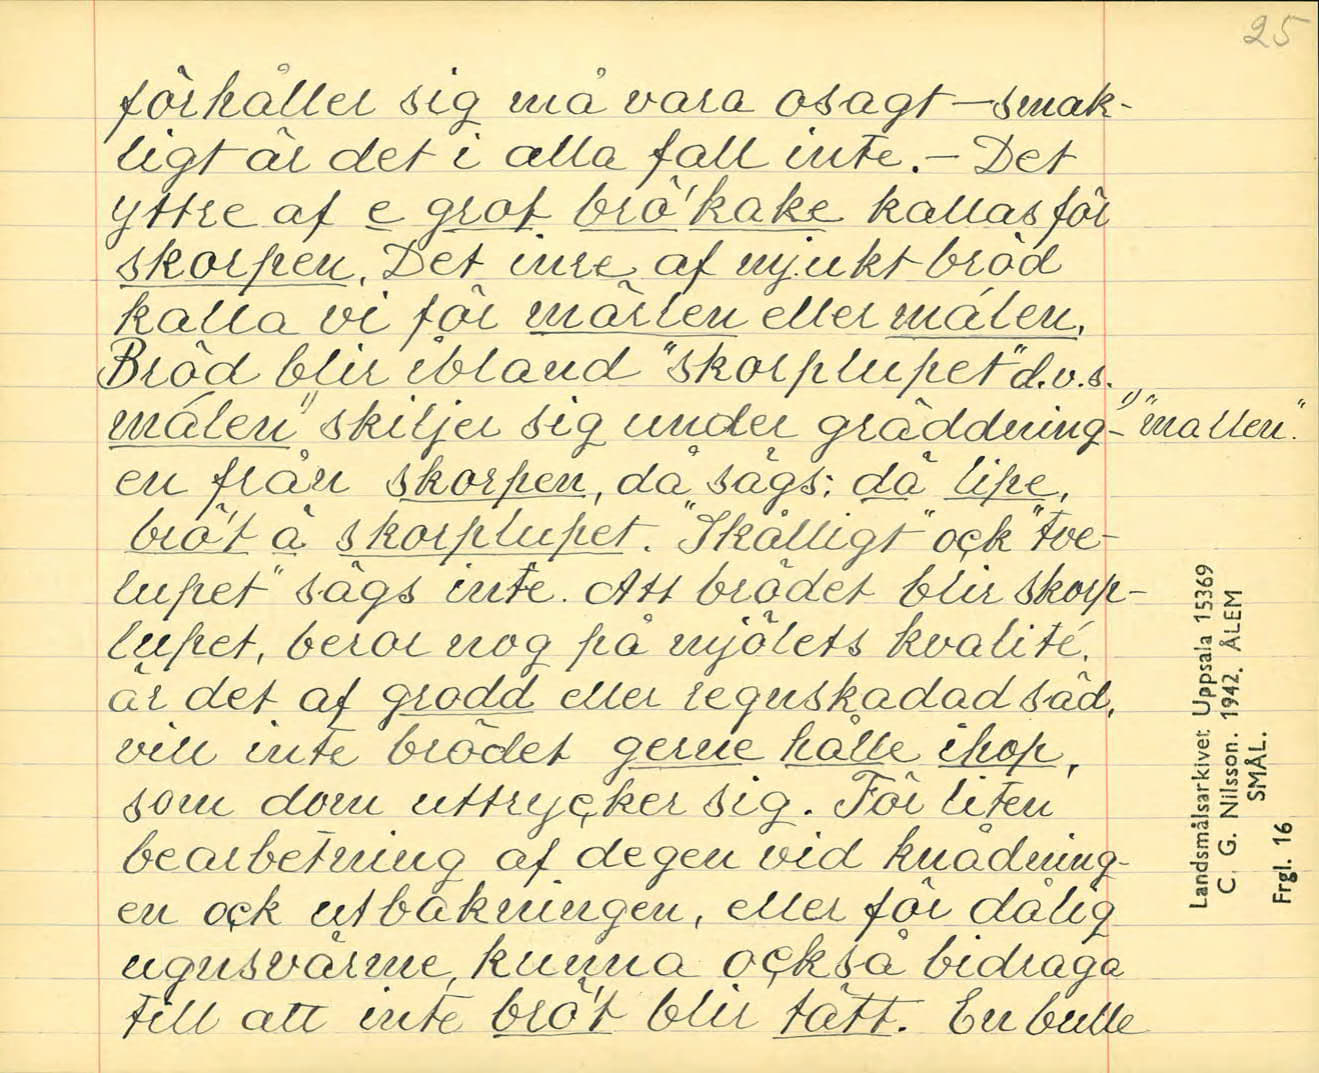 25
förhåller sig må vara osagt – smak-
ligt är det i alla fall inte. – Det
yttre af e grof brö'kake kallas för
skorpen. Det inre af mjukt bröd
kalla vi för mårlen eller málen.
Bröd blir ibland "skorplupet" d.v.s.
málen" skiljer sig under gräddning- ") "mallen".
en från skorpen, då sägs: då lipe,
brö't å skorplupet. "Skålligt" ock "tve-
lupet" sägs inte. Att brödet blir skorp-
lupet, beror nog på mjölets kvalité,
är det af grodd eller regnskadad säd,
vill inte brödet gerne hålle ihop,
som dom uttrycker sig. För liten
bearbetning af degen vid knådning-
en ock utbakningen, eller för dålig
ugnsvärme, kunna också bidraga
till att inte brö't blir tätt. En bulle
Landsmålsarkivet Uppsala 15369
C. G. Nilsson. 1942. ÅLEM
SMÅL.
Frgl. 16